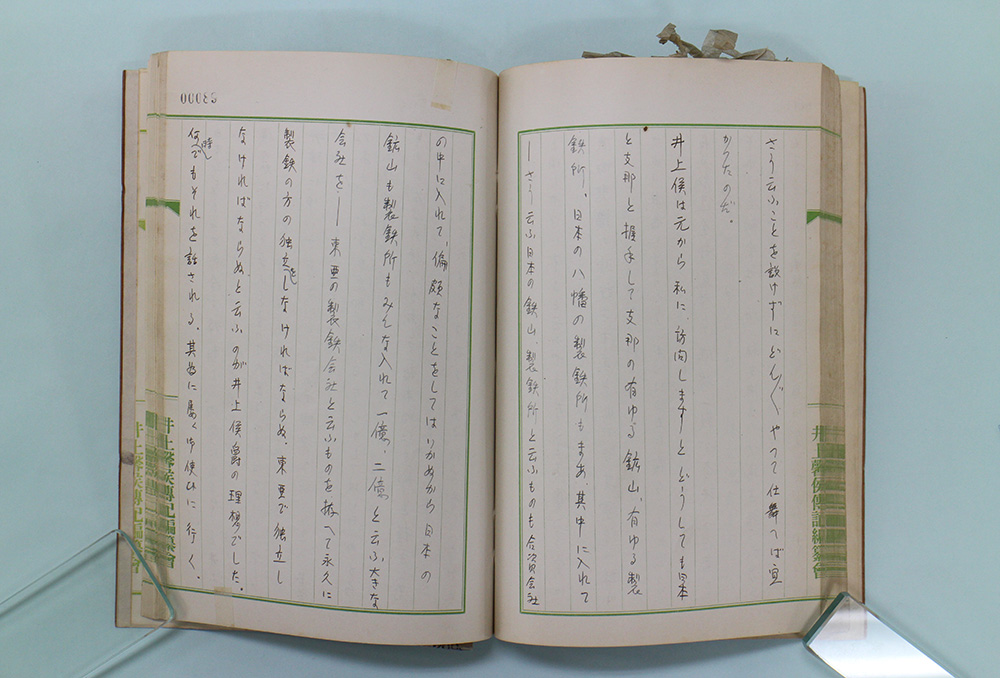 さう云ふことを設けずにどん〲やつて仕舞へば宜
かつたのだ。
井上侯は元から私に、訪問しますと どうしても日本
と支那と握手して支那の有ゆる鉱山、有ゆる製
鉄所、日本の八幡の製鉄所もまあ、其中に入れて
ーさう云ふ日本の鉄山、製鉄所と云ふものも合資会社
の中に入れて、偏頗なことをしてはいかぬから日本の
鉱山も製鉄所もみんな入れて一億、二億と云ふ大きな
会社をー東亜の製鉄会社と云ふものを拵へて永久に
製鉄の方の独立をしなければならぬ、東亜で独立し
なければならぬと云ふのが井上侯爵の理想でした。
何時でもそれを話される、其為に屡々御使ひに行く、
00085
井上馨侯傳記編纂會
井上馨侯傳記編纂會
井上馨侯傳記編纂會